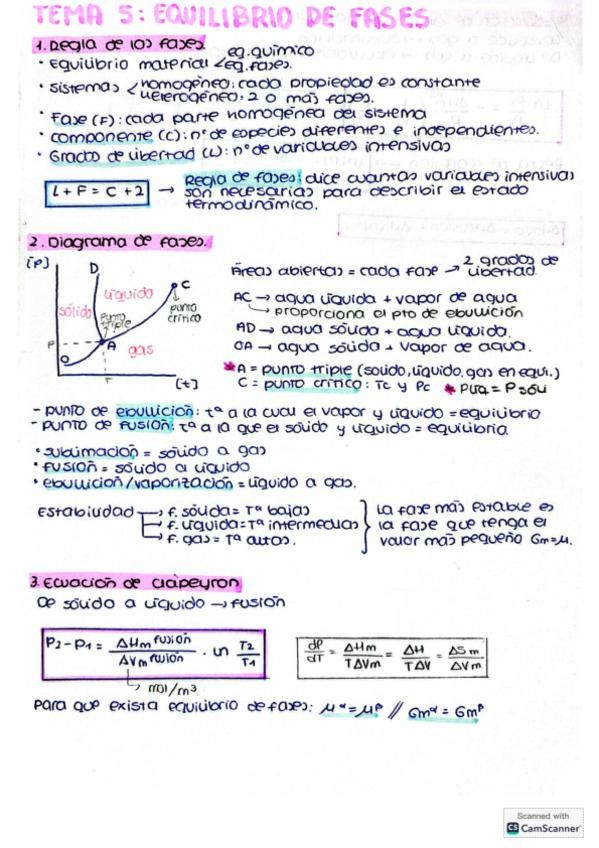 TEMA 5: EQUILIBRIO DE FASES
1. Regla de las fases.
· Equilibrio material < eq. químico
eq. fases.
· Sistemas < homogéneo: cada propiedad es constante
heterogéneo: 2 o más fases.
· Fase (F): cada parte homogénea del sistema
· componente (C): nº de especies diferentes e independientes.
· Grados de libertad (L): nº de variables intensivas
L + F = C + 2 → Regla de fases: dice cuantas variables intensivas
son necesarias para describir el estado
termodinámico.
2. Diagrama de fases.
[P]
D
líquido
C
sólido
punto
triple
punto
crítico
P
A
gas
O
T
[t]
Áreas abiertas = cada fase → 2 grados de
libertad
AC → agua líquida + vapor de agua
→ proporciona el pto de ebullición
AD → agua sólida + agua líquida.
OA → agua sólida + vapor de agua.
* A = punto triple (solido, líquido, gas en equi.)
C = punto crítico: Tc y Pc
- punto de ebullición: tª a la cual el vapor y líquido = equilibrio
- punto de fusión: tª a la que el sólido y líquido = equilibrio.
· sublimación = sólido a gas
· fusión = sólido a líquido
· ebullición/vaporización = líquido a gas.
Estabilidad → f. sólida = Tª bajas
→ f. líquida = Tª intermedias
→ f. gas = Tª altas.
La fase más estable es
la fase que tenga el
valor más pequeño Gm = μ.
3. Ecuación de Clapeyron
De sólido a líquido → fusión
P2 - P1 = ΔHm fusión / ΔVm fusión · ln T2 / T1
→ mol/m³
dP/dT = ΔHm / TΔVm = ΔH / TΔV = ΔSm / ΔVm
Para que exista equilibrio de fases: μα = μβ // Gmα = Gmβ
Scanned with
CS CamScanner